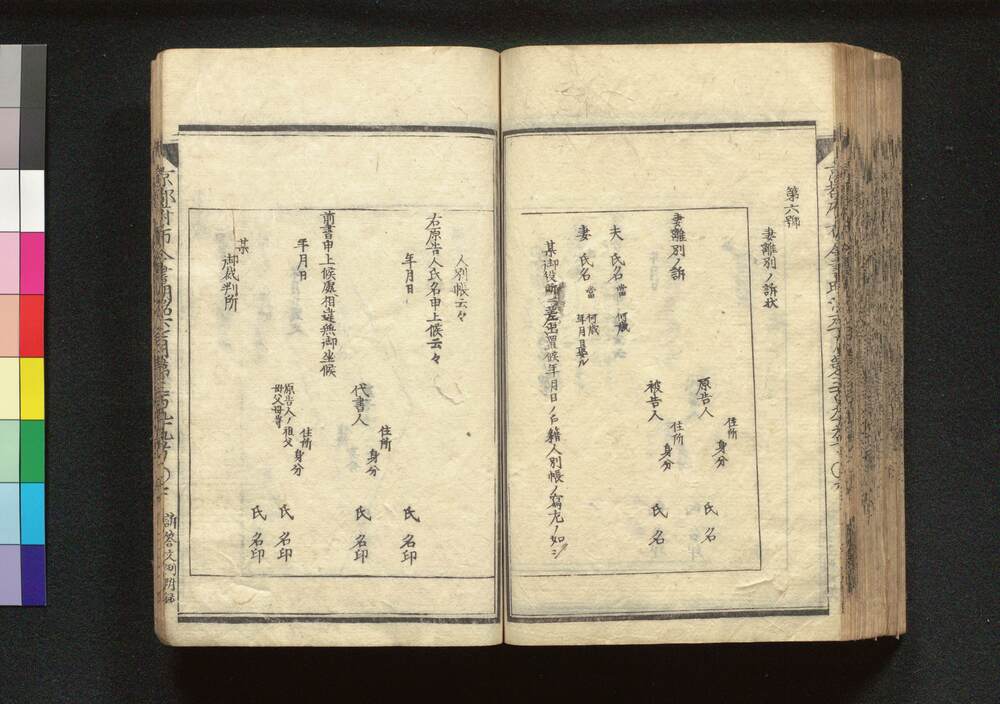 第六號
妻離別ノ訴状
原告人
住所
身分
氏名
被告人
住所
身分
氏名
妻離別ノ訴
夫 氏名 當 何歳
妻 氏名 當 何歳
年月日娶ル
某御役所へ差出置候年月日ノ戸籍人別帳ノ寫左ノ如シ
人別帳云々
右原告人氏名申上候云々
年月日
氏名印
代書人
住所
身分
氏名印
前書申上候處相違無御坐候
年月日
原告人ノ祖父
母父母等
住所
身分
氏名印
氏名印
某
御裁判所
訴答文例附録